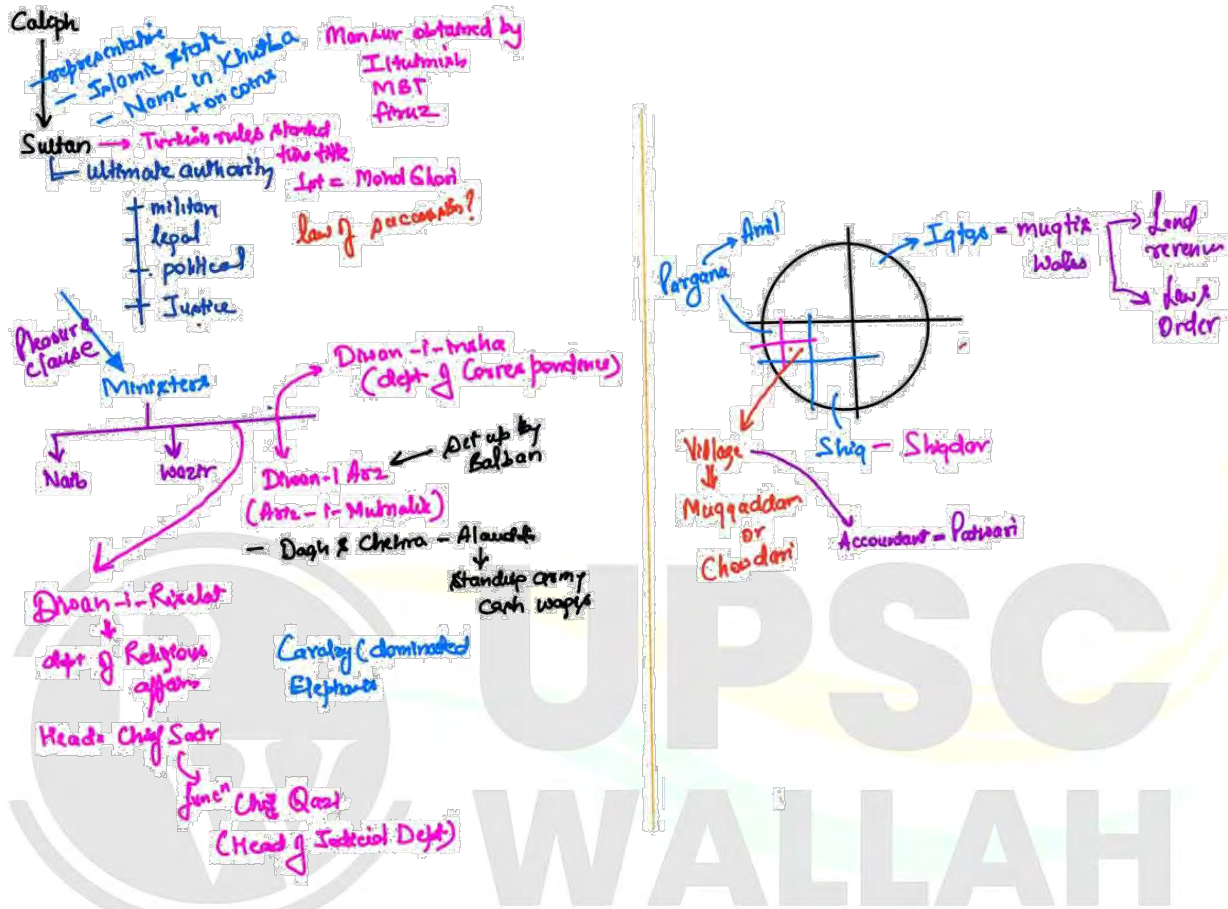 Caleph
- representative
- Islamic state
- Name in Khutba
+ on coins
Mansur obtained by
Iltutmish
MBT
firuz
Sultan → Turkish rules started
this title
1st = Mohd Ghori
ultimate authority
military
legal
political
Justice
law of succession?
Pleasure
clause
Ministers
Naib
wazir
Diwan-i-insha
(dept of Correspondence)
Diwan-i Arz
(Ariz-i-Mumalik)
Set up by
Balban
- Dagh & Chehra - Alauddin
Standup army
cash wages
Diwan-i-Risalat
dept of Religious
affairs
Head = Chief Sadr
funcⁿ Chief Qazi
(Head of Judicial Dept)
Cavalry (dominated
Elephants
Pargana
Amil
Iqtas = muqtis
Walis
Land
revenue
Law &
Order
Shiq - Shiqdar
Village
Muqqaddam
or
Chowdari
Accountant = Patwari
UPSC
WALLAH